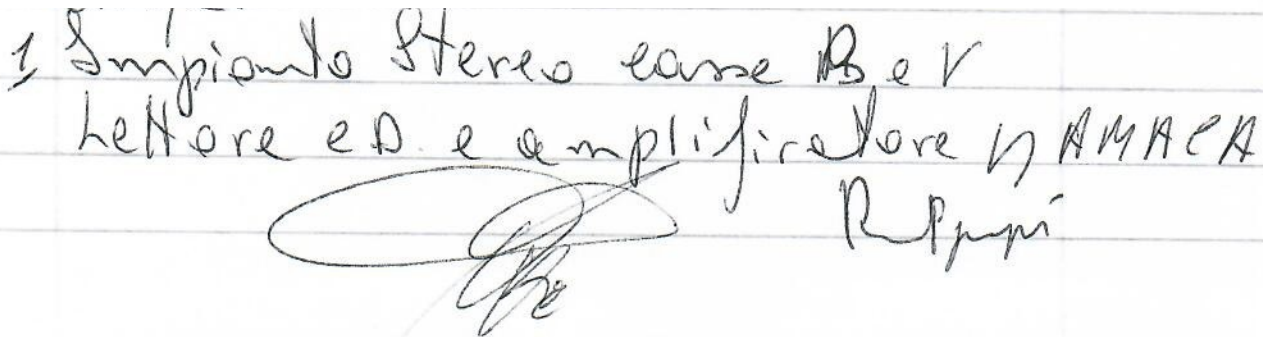 1 Impianto Stereo casse B e V
Lettore CD. e amplificatore